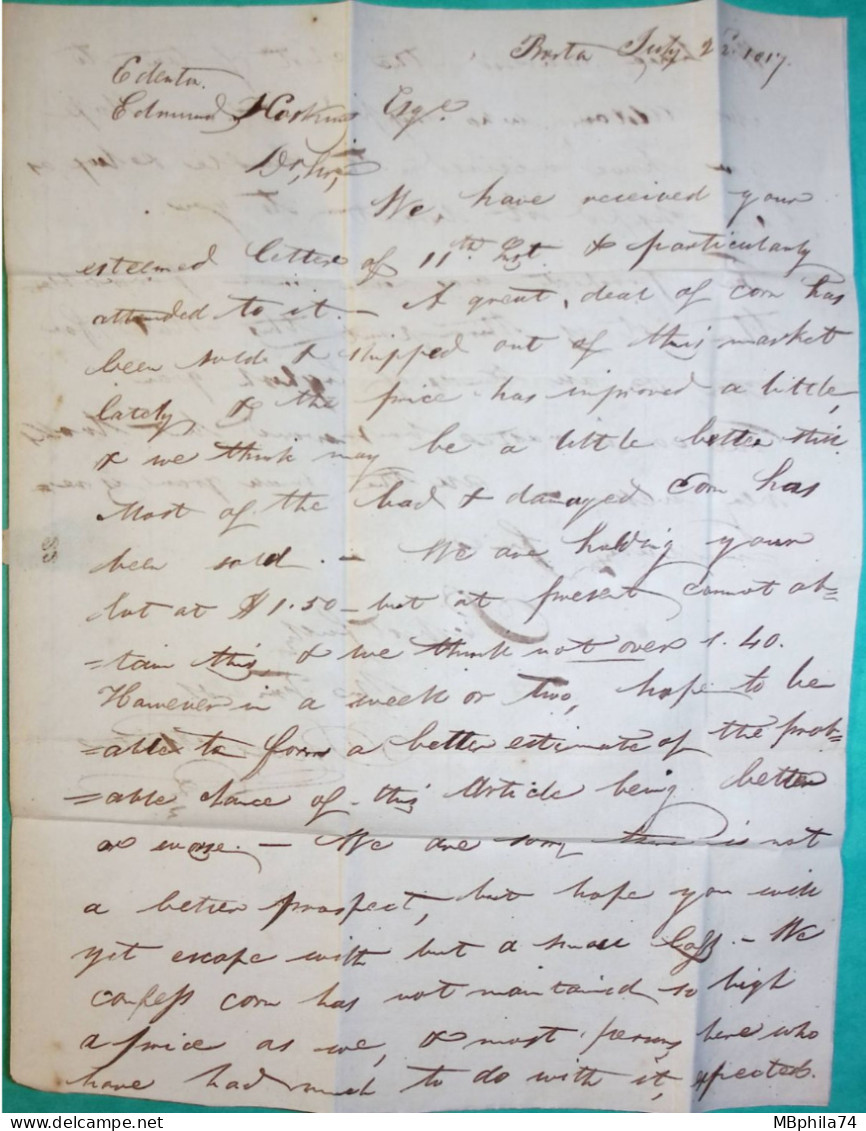 Bosto July 22d 1817.
Edenton
Edmund Hoskins Esqr.
Dr, Sir,
We, have received your
esteemed letter of 11th Inst. & particularly
attended to it. — A great, deal of corn has
been sold & shipped out of this market
lately & the price has improved a little,
& we think may be a little better still.
Most of the bad & damaged Corn has
been sold. — We are holding your
lot at $1.50 — but at present cannot ob=
=tain this, & we think not over 1.40.
However in a week or two, hope to be
=able to form a better estimate of the prob=
=able chance of this Article being better
or worse. — We are sorry there is not
a better prospect, but hope you will
yet escape with but a small Loss. — We
confess corn has not maintained so high
a price as we, & most persons here who
have had much to do with it, expected.
MBphila74